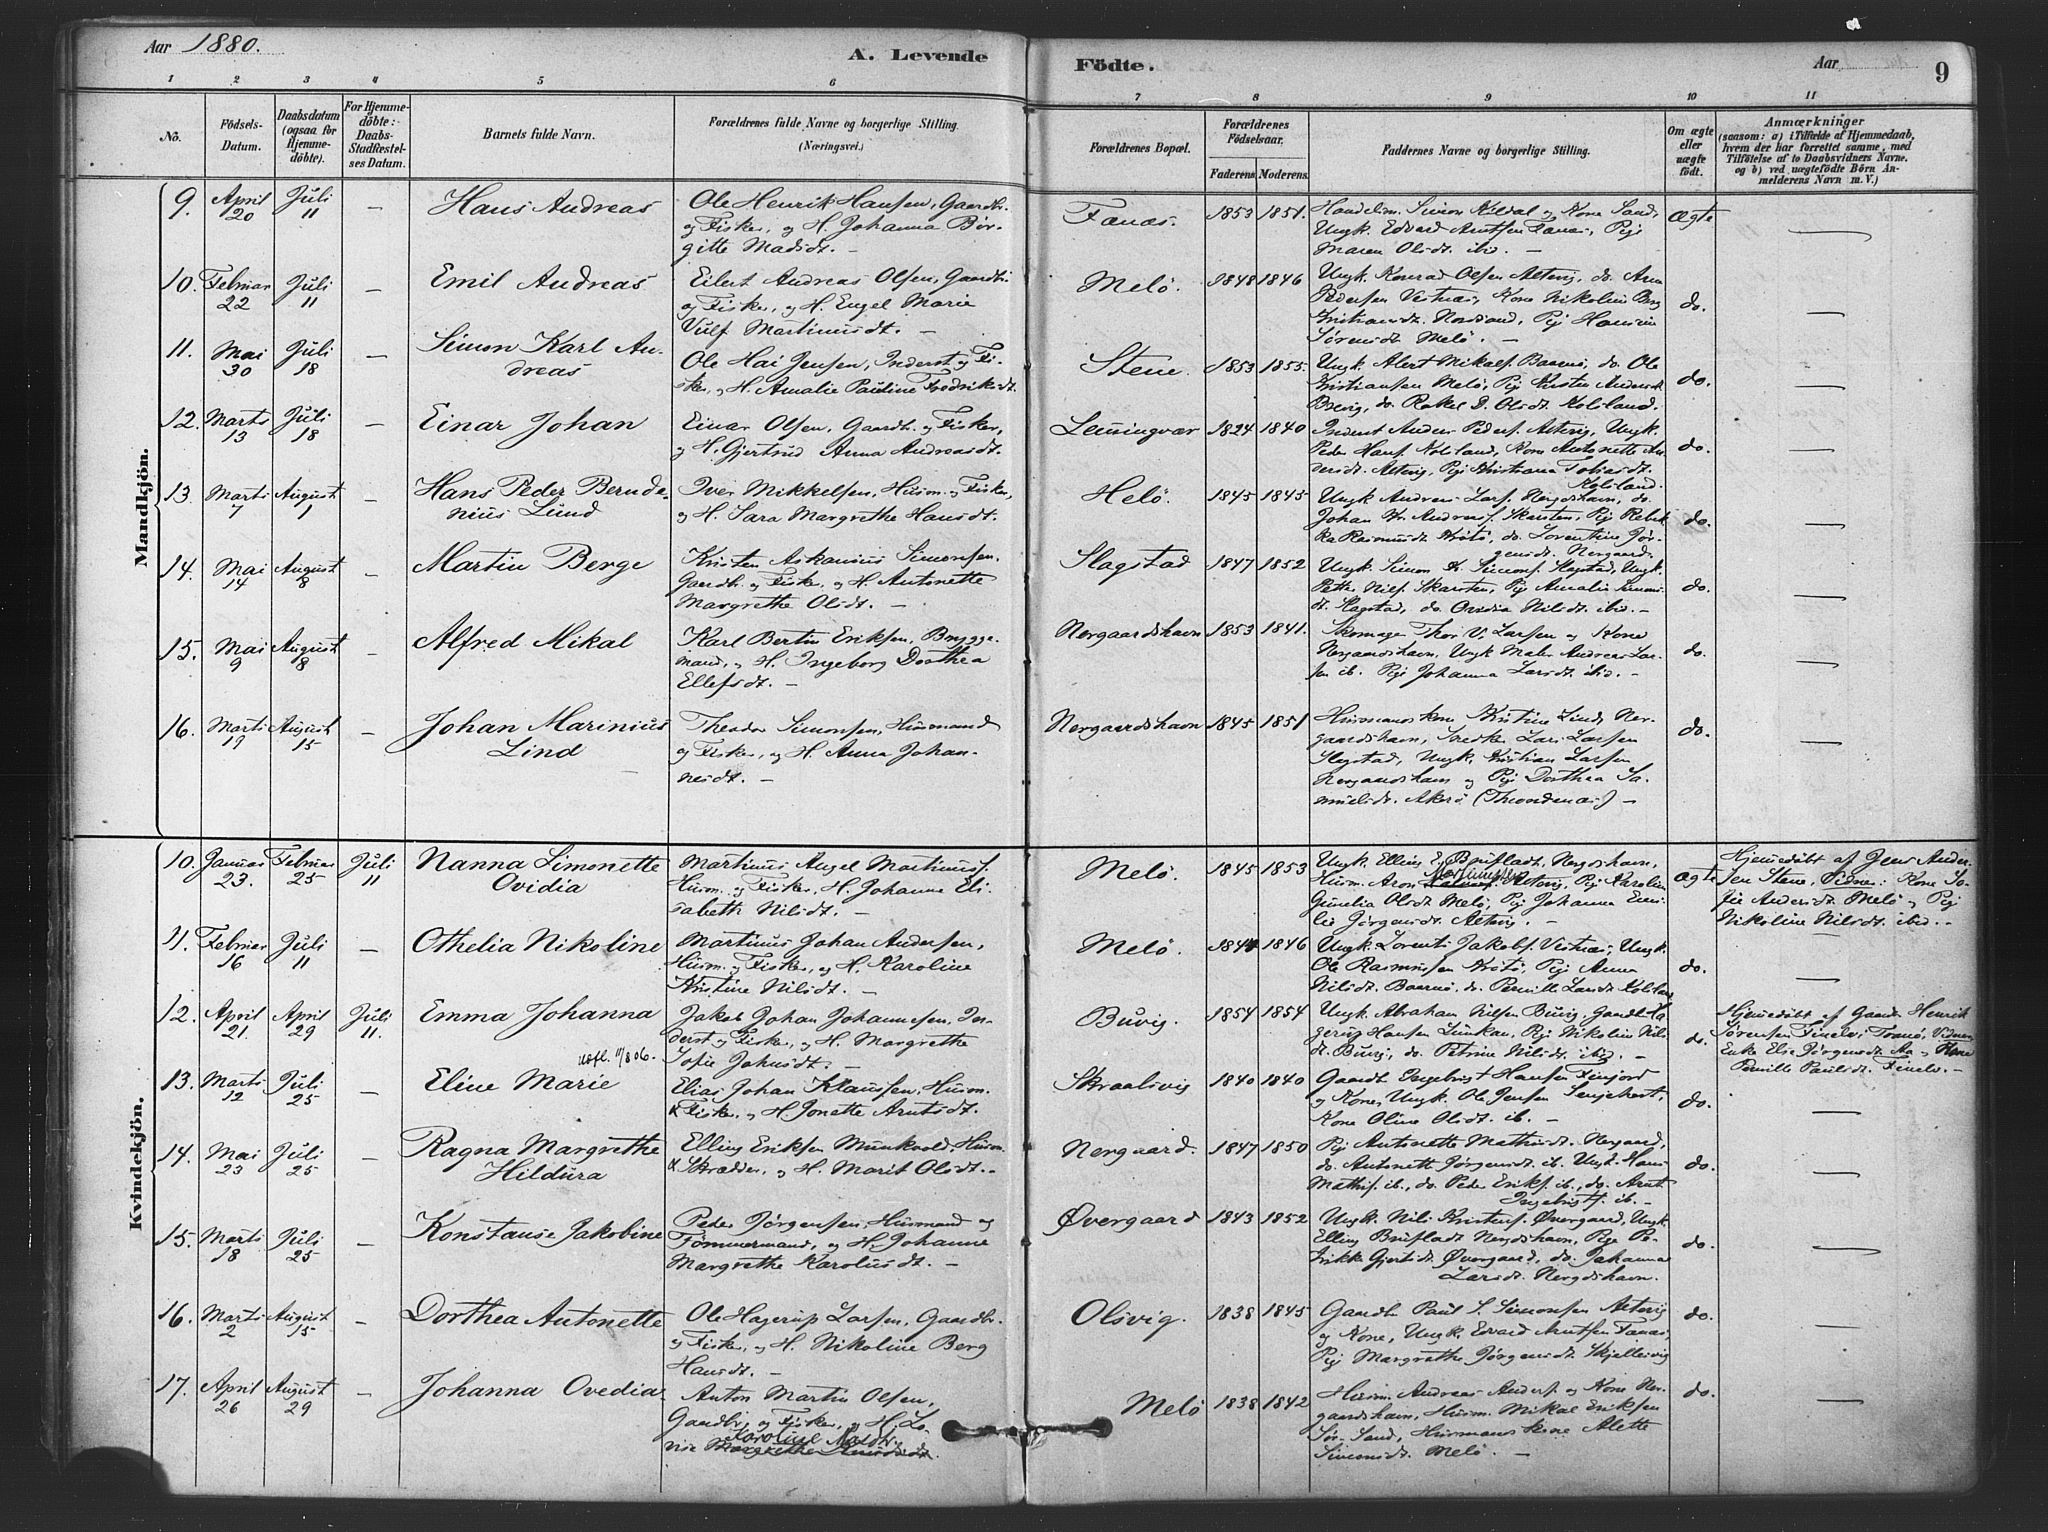 Aar 1880.
A. Levende Födte.
Aar
9
1 2 3 4 5 6 7 8 9 10 11
No.
Födsels-Datum.
Daabsdatum (ogsaa for Hjemmedöbte).
For Hjemmedöbte: Daabs-Stadfæstelses Datum.
Barnets fulde Navn.
Forældrenes fulde Navne og borgerlige Stilling. (Næringsvei.)
Forældrenes Bopæl.
Forældrenes Födselsaar.
Faderens Moderens
Faddernes Navne og borgerlige Stilling.
Om ægte eller uægte födt.
Anmærkninger
(saasom: a) i Tilfælde af Hjemmedaab, hvem der har forrettet samme, med Tilföielse af to Daabsvidners Navne. og b) ved uægtefödte Börn Anmelderens Navn m. V.)
Mandkjön.
9. April 20 Juli 11 — Hans Andreas
Ole Henrik Hansen, Gaardbr.
og Fisker, og H. Johanna Bør-
gitte Madsdt. —
Fanæs. 1853 1851.
Handelsm. Simon Kildal og Kone Sand,
Ungk. Edvard Arntsen Fanæs, Pige
Maren Olsdt. ibid. —
Ægte —
10. Februar 22 Juli 11 — Emil Andreas
Eilert Andreas Olsen, Gaardbr.
og Fisker, og H. Engel Marie
Vulf Martinusdt. —
Melö. 1848 1846
Ungk. Konrad Olsen Altevig, do. Arn
Pedersen Vestnæs, Kone Nikoline Berg
Kristiansdt. Nordsand, Pige Hansine
Sörensdt. Melö. —
do. —
11. Mai 30 Juli 18 — Simon Karl An-
dreas
Ole Hai Jensen, Inderst og Fi-
sker, og H. Amalie Pauline Fredriksdt.
Stene. 1853 1855.
Ungk. Alert Mikaels. Baarnö, do. Ole
Kristiansen Melö, Pige Kirsten Andersdt.
Brevig, do. Rakel D. Olsdt. Kolsland.
do. —
12. Marts 13 Juli 18 — Einar Johan
Einar Olsen, Gaardbr. og Fisker,
og H. Gjertrud Anna Andreasdt.
Lemingvær 1824 1840
Inderst Anders Peders. Altevig, Ungk.
Peder Hans. Kolsland, Kone Antonette An-
dersdt. Altevig, Pige Kristiana Tobiasdt.
Kolsland.
do. —
13. Marts 7 August 1 — Hans Peder Bernde-
nius Lund
Iver Mikkelsen, Husm. og Fisker,
og H. Sara Margrethe Hansdt.
Helö. 1845 1845
Ungk. Andreas Lars. Nergdshavn, do.
Johan Kr. Andreass. Skarsten, Pige Rebek-
ka Rasmusdt. Krötö, do. Lorentine Jör-
gensdt. Nergaard.
do. —
14. Mai 14 August 8 — Martin Berge
Kristen Askanius Simonsen,
Gaardbr. og Fisker, og H. Antonette
Margrethe Olsdt. —
Slagstad 1847 1852
Ungk. Simon K. Simons. Slagstad, Ungk.
Petter Nils. Skarsten, Pige Amalie Simons-
dt. Slagstad, do. Ovidia Nilsdt. ibid. —
do. —
15. Mai 9 August 8 — Alfred Mikal
Karl Bertin Eriksen, Brygge-
mand, og H. Ingeborg Dorthea
Ellefsdt. —
Nergaardshavn 1853 1841.
Skomager Thor V. Larsen og Kone
Nergaardshavn, Ungk. Maler Andreas Lar-
sen ib. Pige Johanna Larsdt. ibid. —
do. —
16. Marts 19 August 15 — Johan Marinius
Lind
Theodor Simonsen, Husmand
og Fisker, og H. Anna Johan-
nesdt. —
Nergaardshavn 1845 1851
Husmandskone Kristine Lind, Ner-
gaardshavn, Snedker Lars Larsen
Slagstad, Ungk. Kristian Larsen
Nergaardshavn og Pige Dorthea Sa-
muelsdt. Akerö (Throndenæs) —
do. —
Kvindekjön.
10. Januar 23. Februar 25 Juli 11 Nanna Simonette
Ovidia
Martinus Angel Martinuss.
Husm. og Fisker, H. Johanne Eli-
sabeth Nilsdt. —
Melö. 1845 1853
Ungk. Elling E. Brufladt, Nergdshavn,
Husm. Aron Martinussen Altevig, Pige Karoline
Gunelia Olsdt. Melö, Pige Johanna Emi-
lie Jörgensdt. Altevig. —
Ægte
Hjemmedöbt af Jens Ander-
sen Stene, Vidner: Kone So-
fie Andersdt. Melö og Pige
Nikoline Nilsdt. ibid. —
11. Februar 16 Juli 11 — Othelia Nikoline
Martinus Johan Andersen,
Husm. og Fisker, og H. Karoline
Kristine Nilsdt. —
Melö. 1844 1846
Ungk. Lorents Jakobs. Vestnæs, Ungk.
Ole Rasmussen Krötö, Pige Anna
Nilsdt. Baarnö, do. Pernille Larsdt. Kolsland
do. —
12. April 21. April 29 Juli 11. Emma Johanna
Utfl. 11/8 06.
Jakob Johan Johannesen, In-
derst og Fisker, og H. Margrethe
Sofie Johnsdt. —
Buvig. 1854 1854
Ungk. Abraham Nilsen Buvig, Gaardbr. Ha-
gerup Hansen Lunkan, Pige Nikoline Nils-
dt. Buvig, do. Petrine Nilsdt. ibid. —
do.
Hjemmedöbt af Gaardbr. Henrik
Sörensen Finelv, Tranö, Vidner,
Enke Else Jörgensdt. Aa og Kone
Pernille Paulsdt. Finelv. —
13. Marts 12 Juli 25 — Eline Marie
Elias Johan Klaussen, Husm.
& Fisker, og H. Jonette Arntsdt.
Skraalsvig 1840 1840
Gaardbr. Ingebrigt Hansen Finfjord
og Kone, Ungk. Ole Jensen Senjehest,
Kone Oline Olsdt. ib. —
do. —
14. Mai 23 Juli 25 — Ragna Margrethe
Hildura
Elling Eriksen Munkvold, Husm.
& Skrædder, og H. Marit Olsdt. —
Nergaard. 1847 1850
Pige Antonette Mathisdt. Nergaard,
do. Antonette Jörgensdt. ib. Ungk. Hans
Mathis. ib., do. Peder Eriks. ib., do. Arnt
Ingebrigts. ib. —
do. —
15. Marts 18 Juli 25 — Konstanse Jakobine
Peder Jörgensen, Husmand og
Tömmermand, og H. Johanne
Margrethe Karolusdt. —
Øvergaard 1843 1852
Ungk. Nils Kristens. Øvergaard, Ungk.
Elling Brufladt Nergdshavn, Pige Fre-
drikke Gjertsdt. Øvergaard, do. Johanna
Larsdt. Nergdshavn.
do. —
16. Marts 2 August 15 — Dorthea Antonette
Ole Hagerup Larsen, Gaardbr.
og Fisker, og H. Nikoline Berg
Hansdt. —
Olsvig. 1838 1845
Gaardbr. Paul S. Simonsen Altevig
og Kone, Ungk. Edvard Arntsen Fanæs,
Pige Margrethe Jörgensdt. Skjellesvig
do. —
17. April 26 August 29 — Johanna Ovedia
Anton Martin Olsen,
Gaardbr. og Fisker, og H. Lo-
vise Karoline
Melö 1838 1842
Husm. Andreas Anders. og Kone Ner-
gaardshavn, Husm. Mikal Eriksen
Sör-Sand, Husmandskone Alette
Simonsdt. Melö. —
do. —